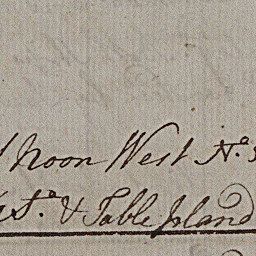 Noon West N.o
S.o & Table Island